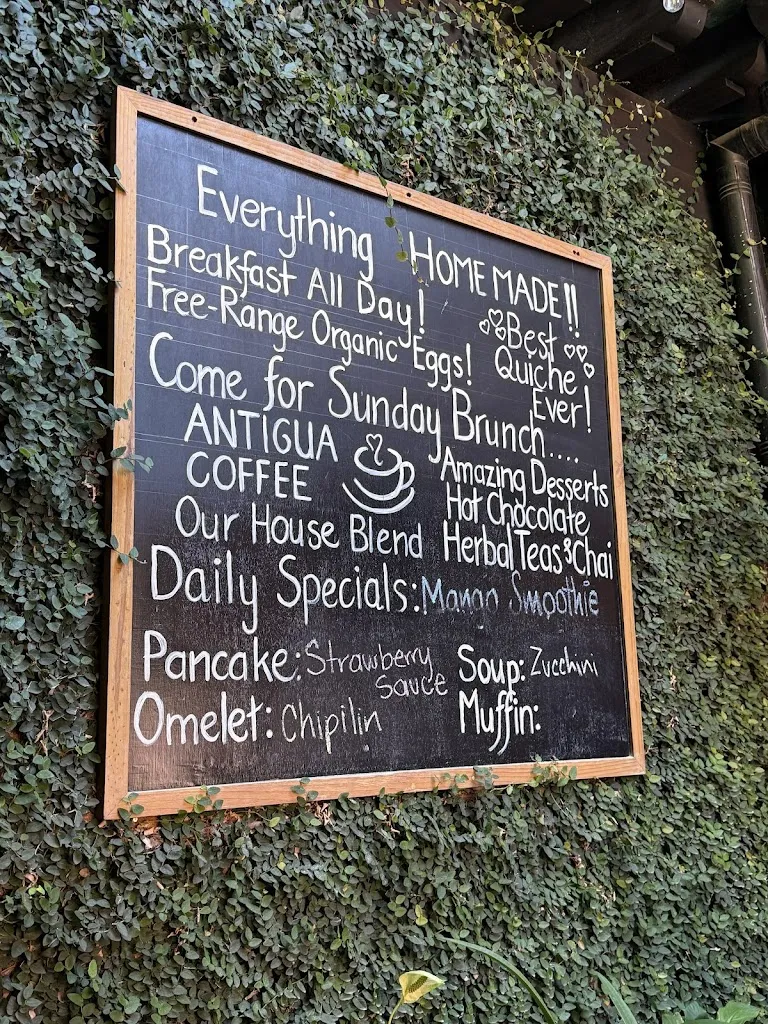 Everything HOME MADE!!
Breakfast All Day!
Free-Range Organic Eggs!
Best
Quiche
Ever!
Come for Sunday Brunch....
ANTIGUA
COFFEE
Our House Blend
Amazing Desserts
Hot Chocolate
Herbal Teas & Chai
Daily Specials: Mango Smoothie
Pancake: Strawberry
Sauce
Omelet: Chipilin
Soup: Zucchini
Muffin: